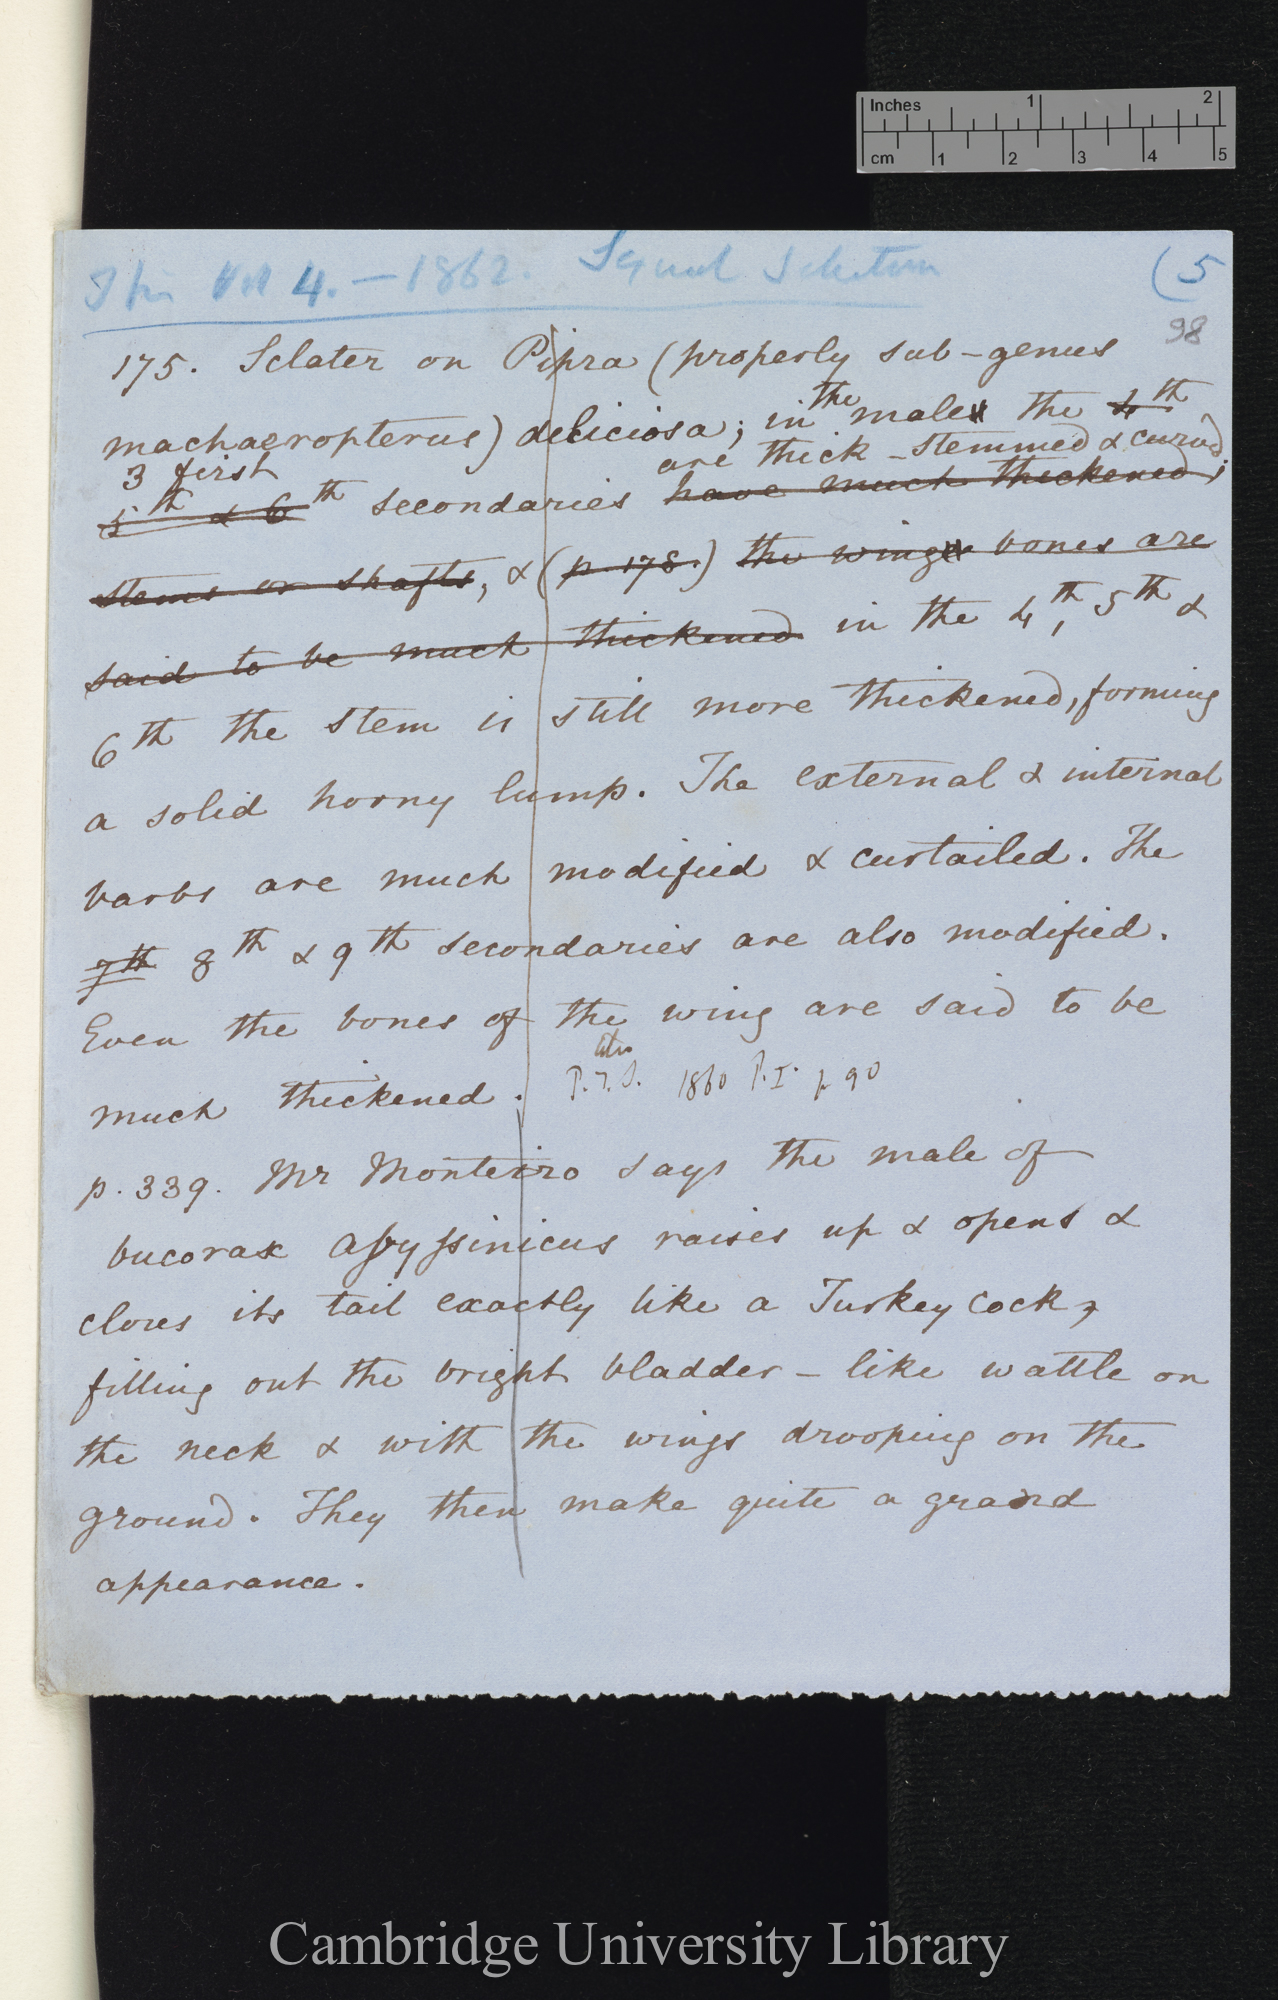 Inches 1 2
cm 1 2 3 4 5
Ibis Vol 4. — 1862. Sexual Selection (5
98
175. Sclater on Pipra (properly sub-genus
machaeropterus) deliciosa; in the male the 4th
3 first are thick-stemmed & curved;
5th & 6th secondaries have much thickened
stems or shafts, & (p. 178.) the wings bones are
said to be much thickened in the 4th, 5th &
6th the stem is still more thickened, forming
a solid horny lump. The external & internal
barbs are much modified & curtailed. The
7th 8th & 9th secondaries are also modified.
Even the bones of the wing are said to be
much thickened. P. Z. S. 1860 P. I. p 90
p. 339. Mr Monteiro says the male of
bucorax Abyssinicus raises up & opens &
closes its tail exactly like a Turkey Cock,
filling out the bright bladder-like wattle on
the neck & with the wings drooping on the
ground. They then make quite a grand
appearance.
Cambridge University Library